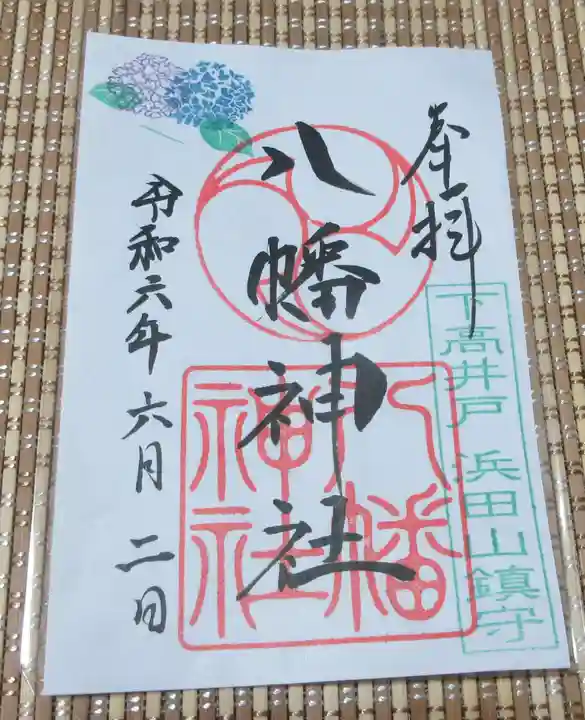 奉拝
下高井戸 浜田山鎮守
八幡神社
八幡
神社
令和六年 六月 二日